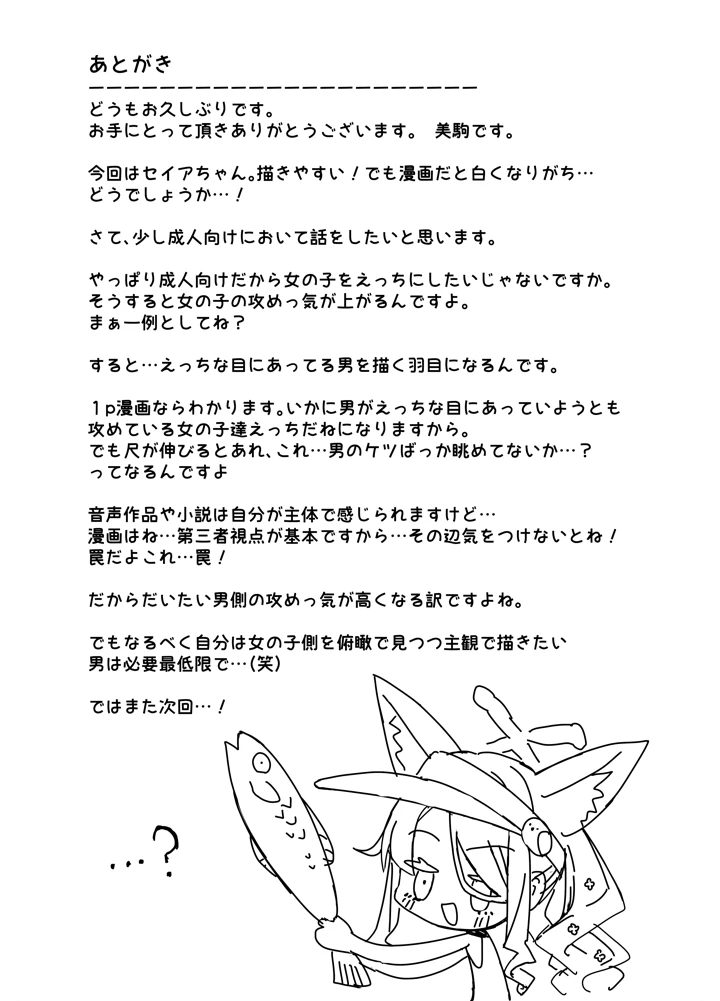 あとがき
ーーーーーーーーーーーーーーーーーーーーーー
どうもお久しぶりです。
お手にとって頂きありがとうございます。　美駒です。
今回はセイアちゃん。描きやすい！でも漫画だと白くなりがち…
どうでしょうか…！
さて、少し成人向けにおいて話をしたいと思います。
やっぱり成人向けだから女の子をえっちにしたいじゃないですか。
そうすると女の子の攻めっ気が上がるんですよ。
まぁ一例としてね？
すると…えっちな目にあってる男を描く羽目になるんです。
１p漫画ならわかります。いかに男がえっちな目にあっていようとも
攻めている女の子達えっちだねになりますから。
でも尺が伸びるとあれ、これ…男のケツばっか眺めてないか…？
ってなるんですよ
音声作品や小説は自分が主体で感じられますけど…
漫画はね…第三者視点が基本ですから…その辺気をつけないとね！
罠だよこれ…罠！
だからだいたい男側の攻めっ気が高くなる訳ですよね。
でもなるべく自分は女の子側を俯瞰で見つつ主観で描きたい
男は必要最低限で…（笑）
ではまた次回…！
…?